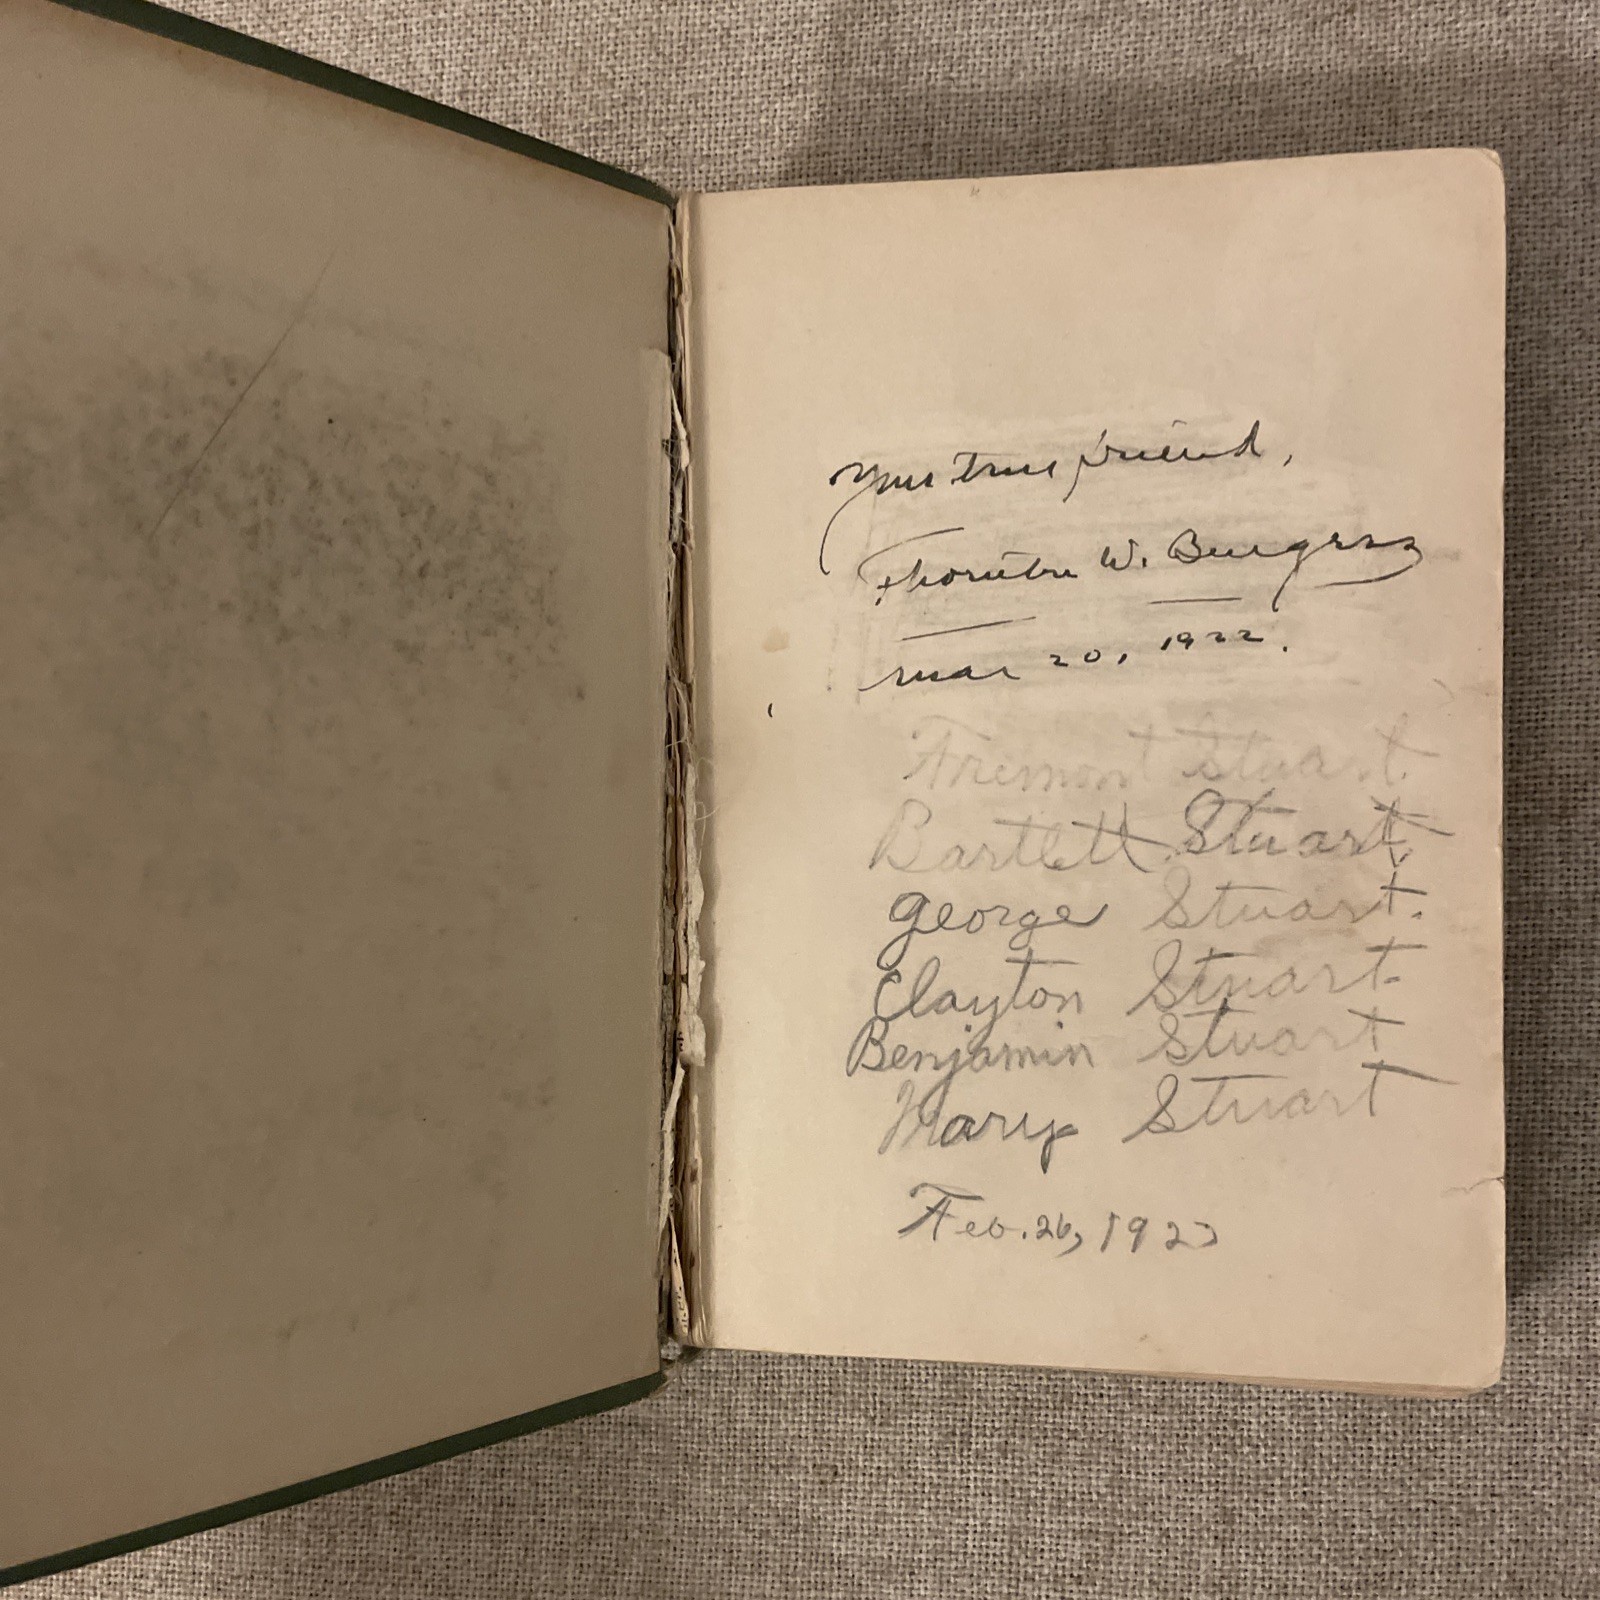 Your true friend,
Thornton W. Burgess
Mar 20, 1922.
Fremont Stuart.
Bartlett Stuart.
George Stuart.
Clayton Stuart.
Benjamin Stuart
Mary Stuart
Feb. 26, 1923